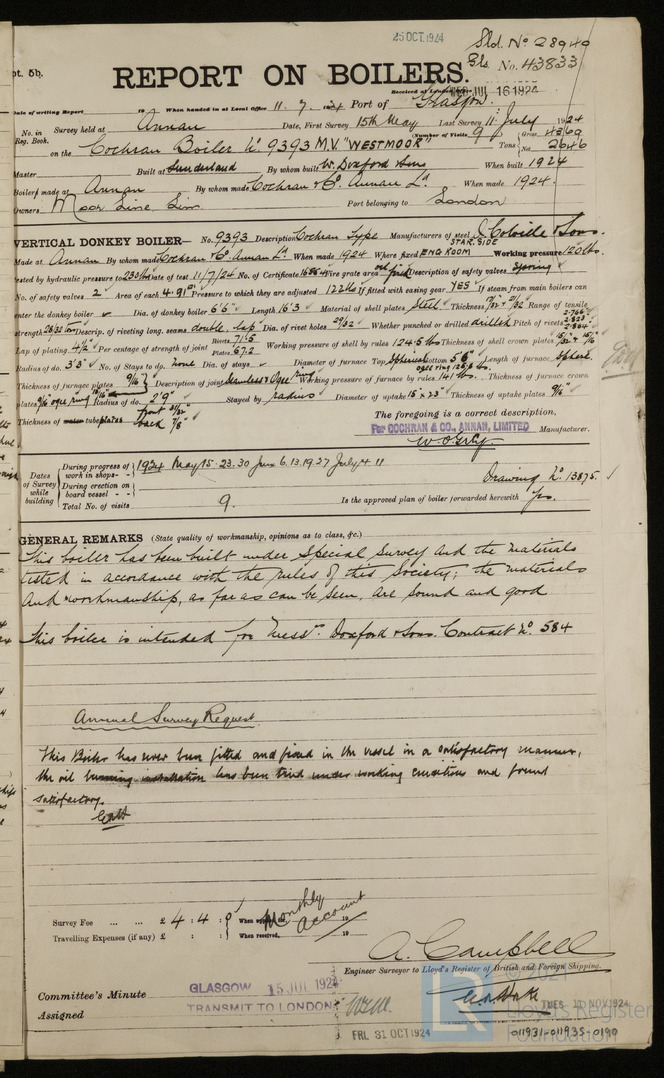 25 OCT. 1924
Sld. No 28940
Gls. No. 43833
pt. 5b.
REPORT ON BOILERS.
Received at London WED. JUL 16 1924
Date of writing Report 19 When handed in at Local Office 11. 7. 1924 Port of Glasgow
No. in Reg. Book. Survey held at Annan Date, First Survey 15th May Last Survey 11 July 1924
on the Cochran Boiler No 9393 M.V. "WESTMOOR" (Number of Visits 9) Tons Gross 4369 Net 2646
Master Built at Sunderland By whom built W. Doxford & Sons When built 1924
Boilers made at Annan By whom made Cochran & Co. Annan Ld When made 1924.
Owners Moor Line Lim Port belonging to London
VERTICAL DONKEY BOILER— No. 9393 Description Cochran Type Manufacturers of steel D. Colville & Sons.
Made at Annan By whom made Cochran & Co. Annan Ld When made 1924 Where fixed STAR. SIDE ENG ROOM Working pressure 120 lbs.
tested by hydraulic pressure to 230 lbs Date of test 11/7/24 No. of Certificate 16564 Fire grate area oil fired Description of safety valves Spring
No. of safety valves 2 Area of each 4.91" Pressure to which they are adjusted 122 lbs If fitted with easing gear YES If steam from main boilers can
enter the donkey boiler Dia. of donkey boiler 6'6" Length 16'3 Material of shell plates Steel Thickness Range of tensile
strength 28/32 tons Descrip. of riveting long. seams double. lap Dia. of rivet holes 29/32 Whether punched or drilled drilled Pitch of rivets
Lap of plating 4 1/2" Per centage of strength of joint Rivets 71.5 Plates 67.2 Working pressure of shell by rules 124.5 lbs Thickness of shell crown plates
Radius of do. 3'3" No. of Stays to do. none Dia. of stays Diameter of furnace Top Spherical Bottom 5'6" Length of furnace Spheric.
Thickness of furnace plates 9/16" Description of joint Seamless & Ogee Ring Working pressure of furnace by rules 141 lbs. Thickness of furnace crown
plates 9/16 ogee ring Radius of do. 2'9" Stayed by radius Diameter of uptake 15 x 23" Thickness of uptake plates 9/16"
Thickness of water tube plates front 31/32" back 7/8"
The foregoing is a correct description,
For COCHRAN & CO., ANNAN, LIMITED Manufacturer.
Dates of Survey while building
During progress of work in shops - - 1924 May 15. 23. 30 June 6. 13. 19. 27 July 4 11
During erection on board vessel - -
Total No. of visits 9.
Drawing No. 13875.
Is the approved plan of boiler forwarded herewith Yes.
GENERAL REMARKS (State quality of workmanship, opinions as to class, &c.)
This boiler has been built under Special Survey and the materials
tested in accordance with the rules of this Society; the materials
and workmanship, as far as can be seen, are sound and good
This boiler is intended for Messrs. Doxford & Sons. Contract No. 584
Annual Survey Request
This Boiler has now been fitted and fixed in the vessel in a satisfactory manner,
the oil burning installation has been tried under working conditions and found
satisfactory.
Survey Fee ... ... £ 4 : 4 : 0 When applied for, Monthly Account 19
Travelling Expenses (if any) £ : : When received, 19
A. Campbell
Engineer Surveyor to Lloyd's Register of British and Foreign Shipping.
Committee's Minute GLASGOW 15 JUL 1924
Assigned TRANSMIT TO LONDON
TUES. 11 NOV 1924
FRI. 31 OCT 1924
© 2021
Lloyd's Register
Foundation
011931-011935-0190